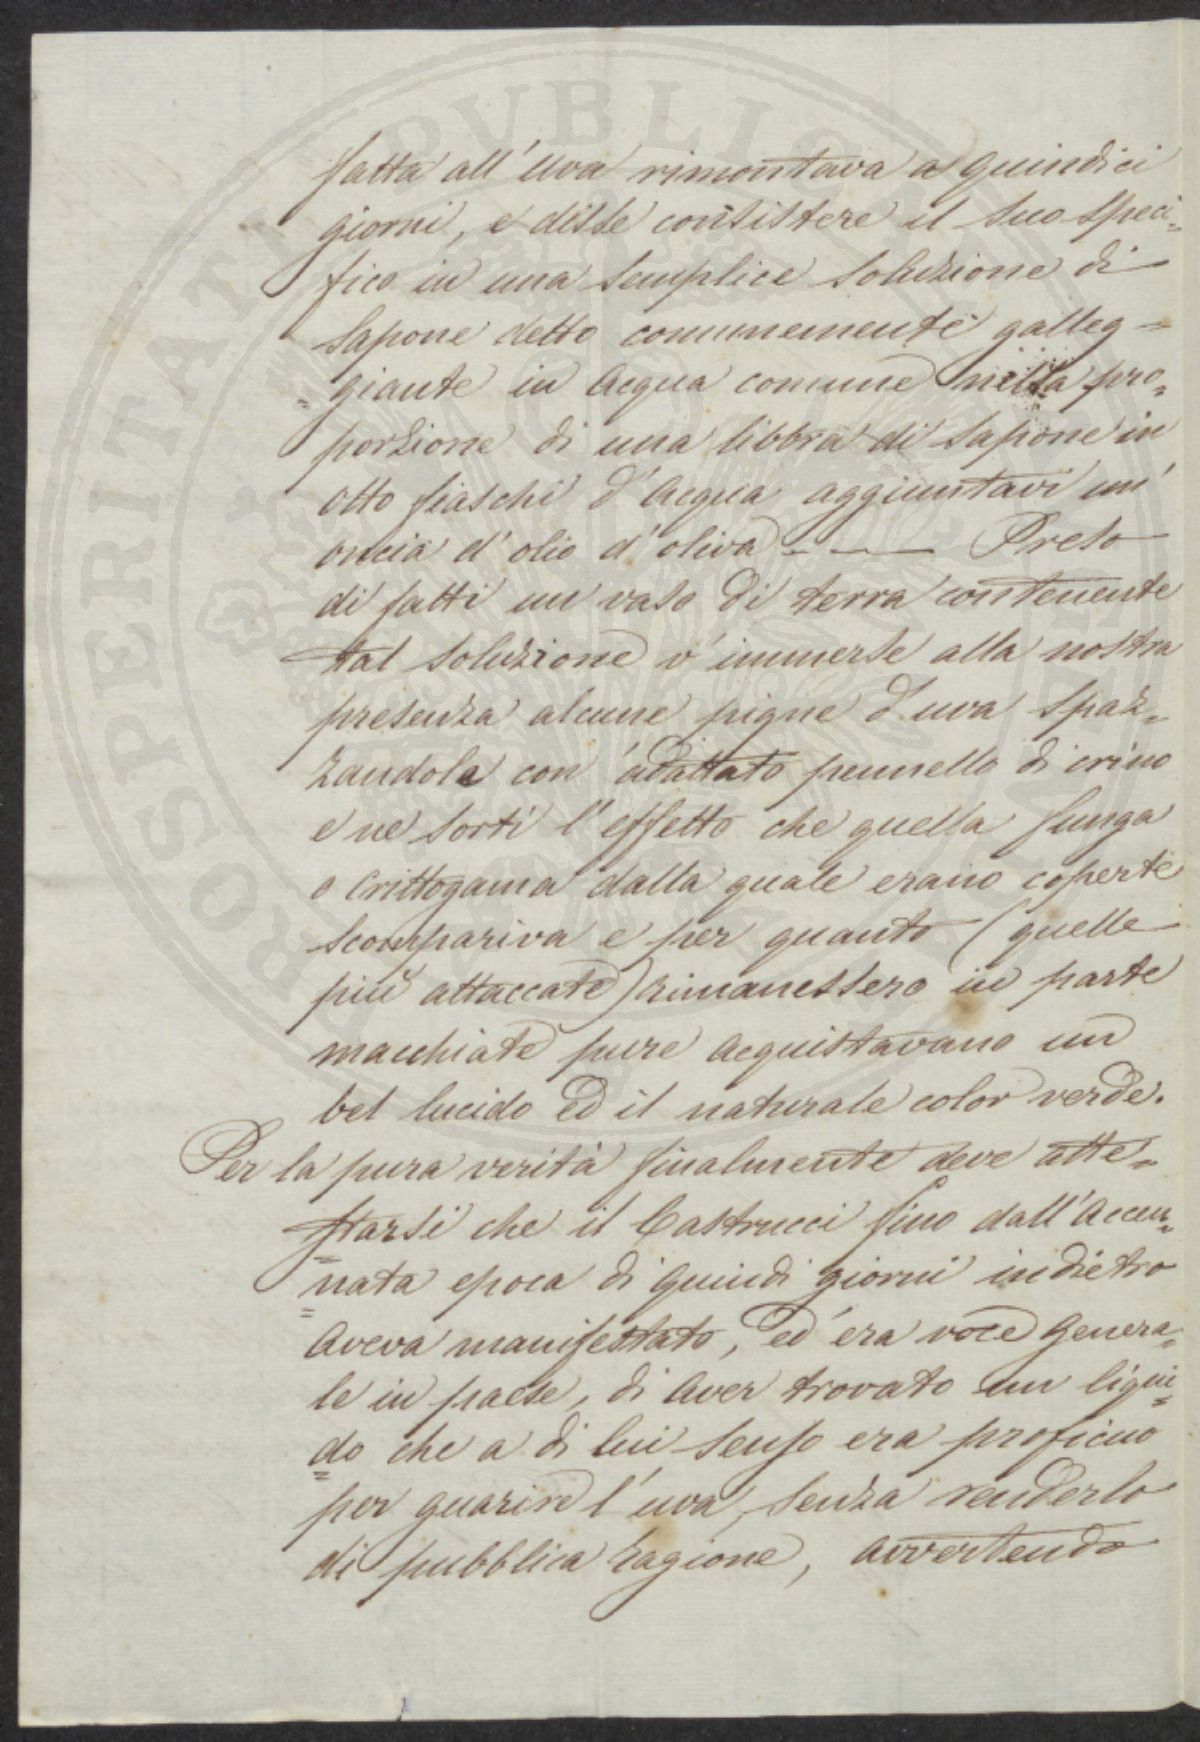 fatta all'Uva rimontava a quindici
giorni, e disse consistere il suo speci=
fico in una semplice soluzione di
sapone detto comunemente galleg=
=giante in acqua comune nella pro=
porzione di una libbra di sapone in
otto fiaschi d'acqua aggiuntavi un'
oncia d'olio d'oliva — — Preso
di fatti un vaso di terra contenente
tal soluzione v'immerse alla nostra
presenza alcune pigne d'uva spaz=
zandola con adattato pennello di crino
e ne sortì l'effetto che quella funga
o crittogama dalla quale erano coperte
scompariva e per quanto (quelle
più attaccate) rimanessero in parte
macchiate pure acquistavano un
bel lucido ed il naturale color verde.
Per la pura verità finalmente deve atte=
=starsi che il Castrucci fino dall'accen=
=nata epoca di quindi giorni indietro
aveva manifestato, ed era voce genera=
le in paese, di aver trovato un liqui=
=do che a di lui senso era proficuo
per guarire l'uva, senza renderlo
di pubblica ragione, avvertendo
PROSPERITATI PVBLICAE